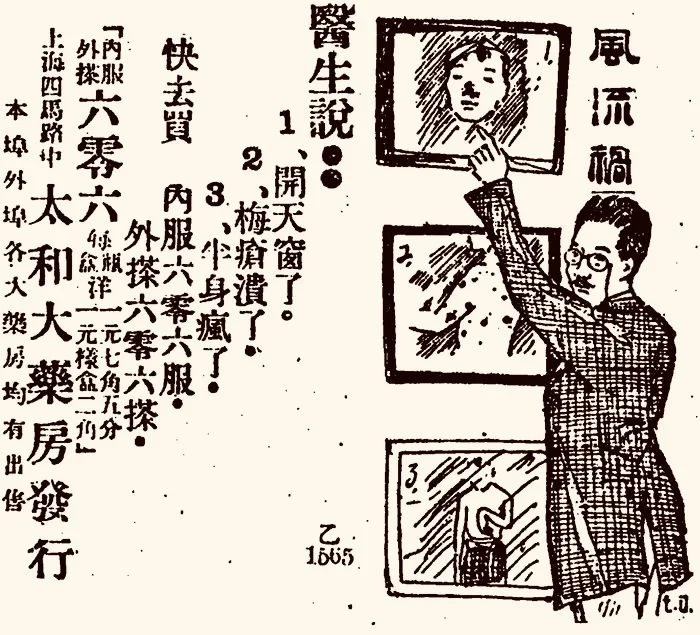 風流禍
醫生說：
1、開天窗了。
2、梅瘡潰了。
3、半身瘋了。
快去買
內服六零六服．
外搽六零六搽．
「內服
外搽
六零六
每瓶洋一元七角五分
每盒洋一元樣盒二角」
上海四馬路中
太和大藥房發行
本埠外埠各大藥房均有出售
乙
1565
1
2.
3
t.u.